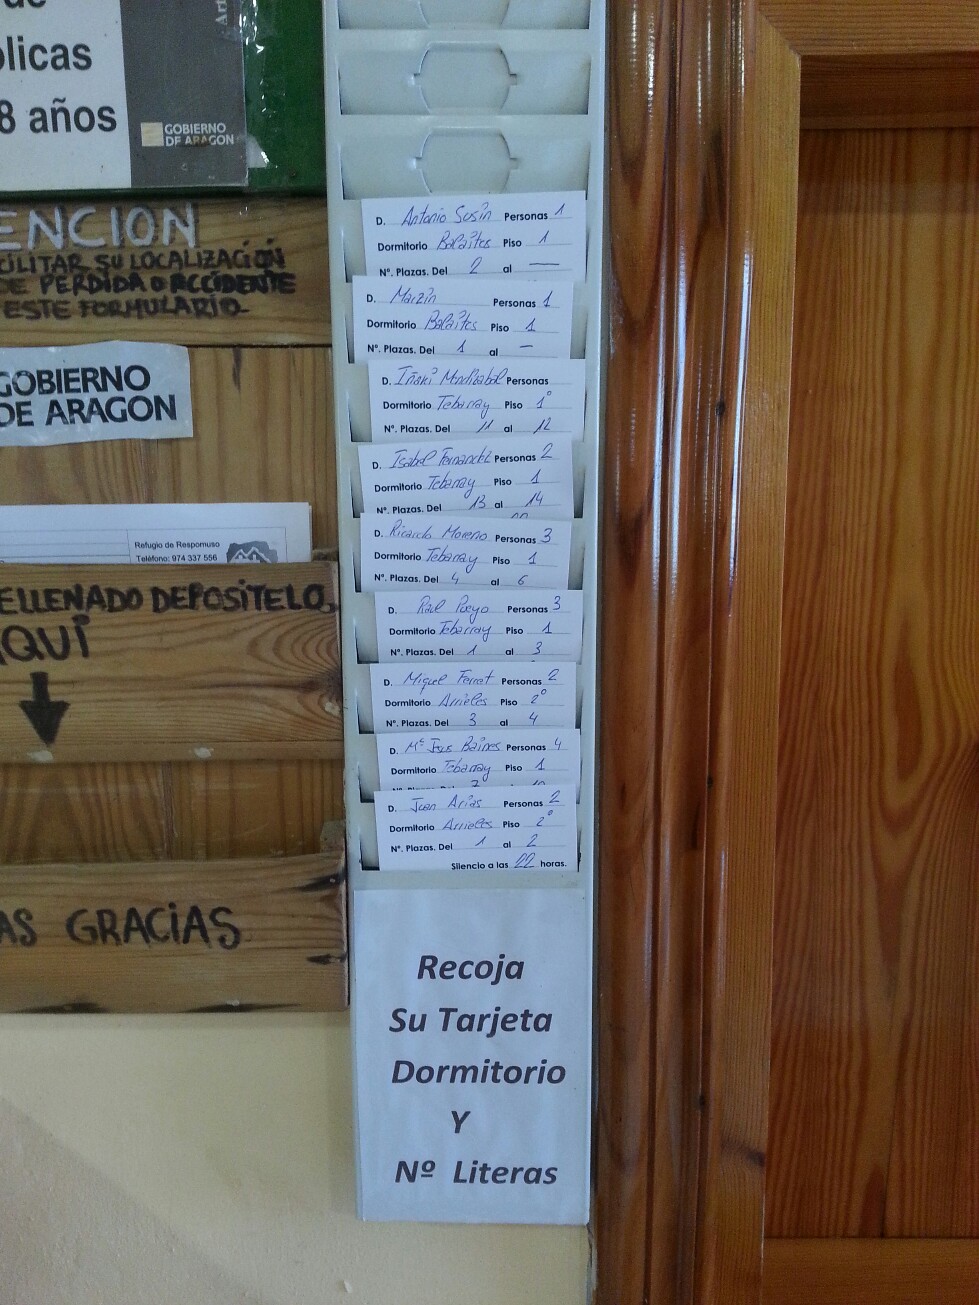 de
olicas
8 años
GOBIERNO
DE ARAGON
ENCION
CILITAR SU LOCALIZACIÓN
DE PÉRDIDA O ACCIDENTE
ESTE FORMULARIO
GOBIERNO
DE ARAGON
Refugio de Respomuso
Teléfono: 974 337 556
ELLENADO DEPOSÍTELO
AQUÍ
AS GRACIAS
D. Antonio Susín Personas 1
Dormitorio Balaitos Piso 1
Nº. Plazas. Del 2 al —
D. Marzin Personas 1
Dormitorio Balaitos Piso 1
Nº. Plazas. Del 1 al —
D. Iñaki Mendizabal Personas
Dormitorio Tebarray Piso 1º
Nº. Plazas. Del 11 al 12
D. Isabel Fernandez Personas 2
Dormitorio Tebarray Piso 1
Nº. Plazas. Del 13 al 14
D. Ricardo Moreno Personas 3
Dormitorio Tebarray Piso 1
Nº. Plazas. Del 4 al 6
D. Raul Pueyo Personas 3
Dormitorio Tebarray Piso 1
Nº. Plazas. Del 1 al 3
D. Miguel Ferret Personas 2
Dormitorio Arrieles Piso 2º
Nº. Plazas. Del 3 al 4
D. Mª Personas 4
Dormitorio Tebarray Piso 1
D. Juan Arias Personas 2
Dormitorio Arrieles Piso 2º
Nº. Plazas. Del 1 al 2
Silencio a las 22 horas.
Recoja
Su Tarjeta
Dormitorio
Y
Nº Literas